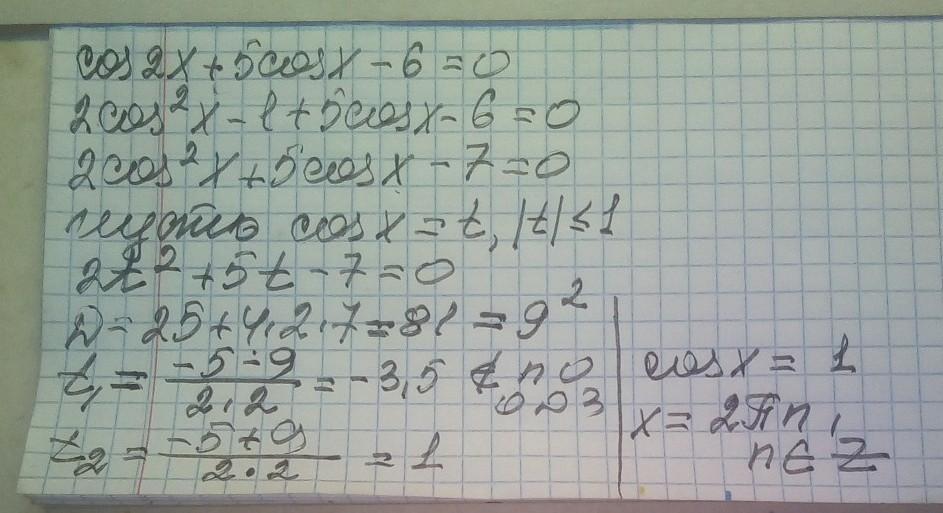 cos2x + 5cosx - 6 = 0
2cos²x - 1 + 5cosx - 6 = 0
2cos²x + 5cosx - 7 = 0
пусть cosx = t, |t| ≤ 1
2t² + 5t - 7 = 0
D = 25 + 4·2·7 = 81 = 9²
t₁ = (-5-9)/(2·2) = -3,5 ∉ по ОДЗ
t₂ = (-5+9)/(2·2) = 1
cosx = 1
x = 2πn,
n ∈ Z